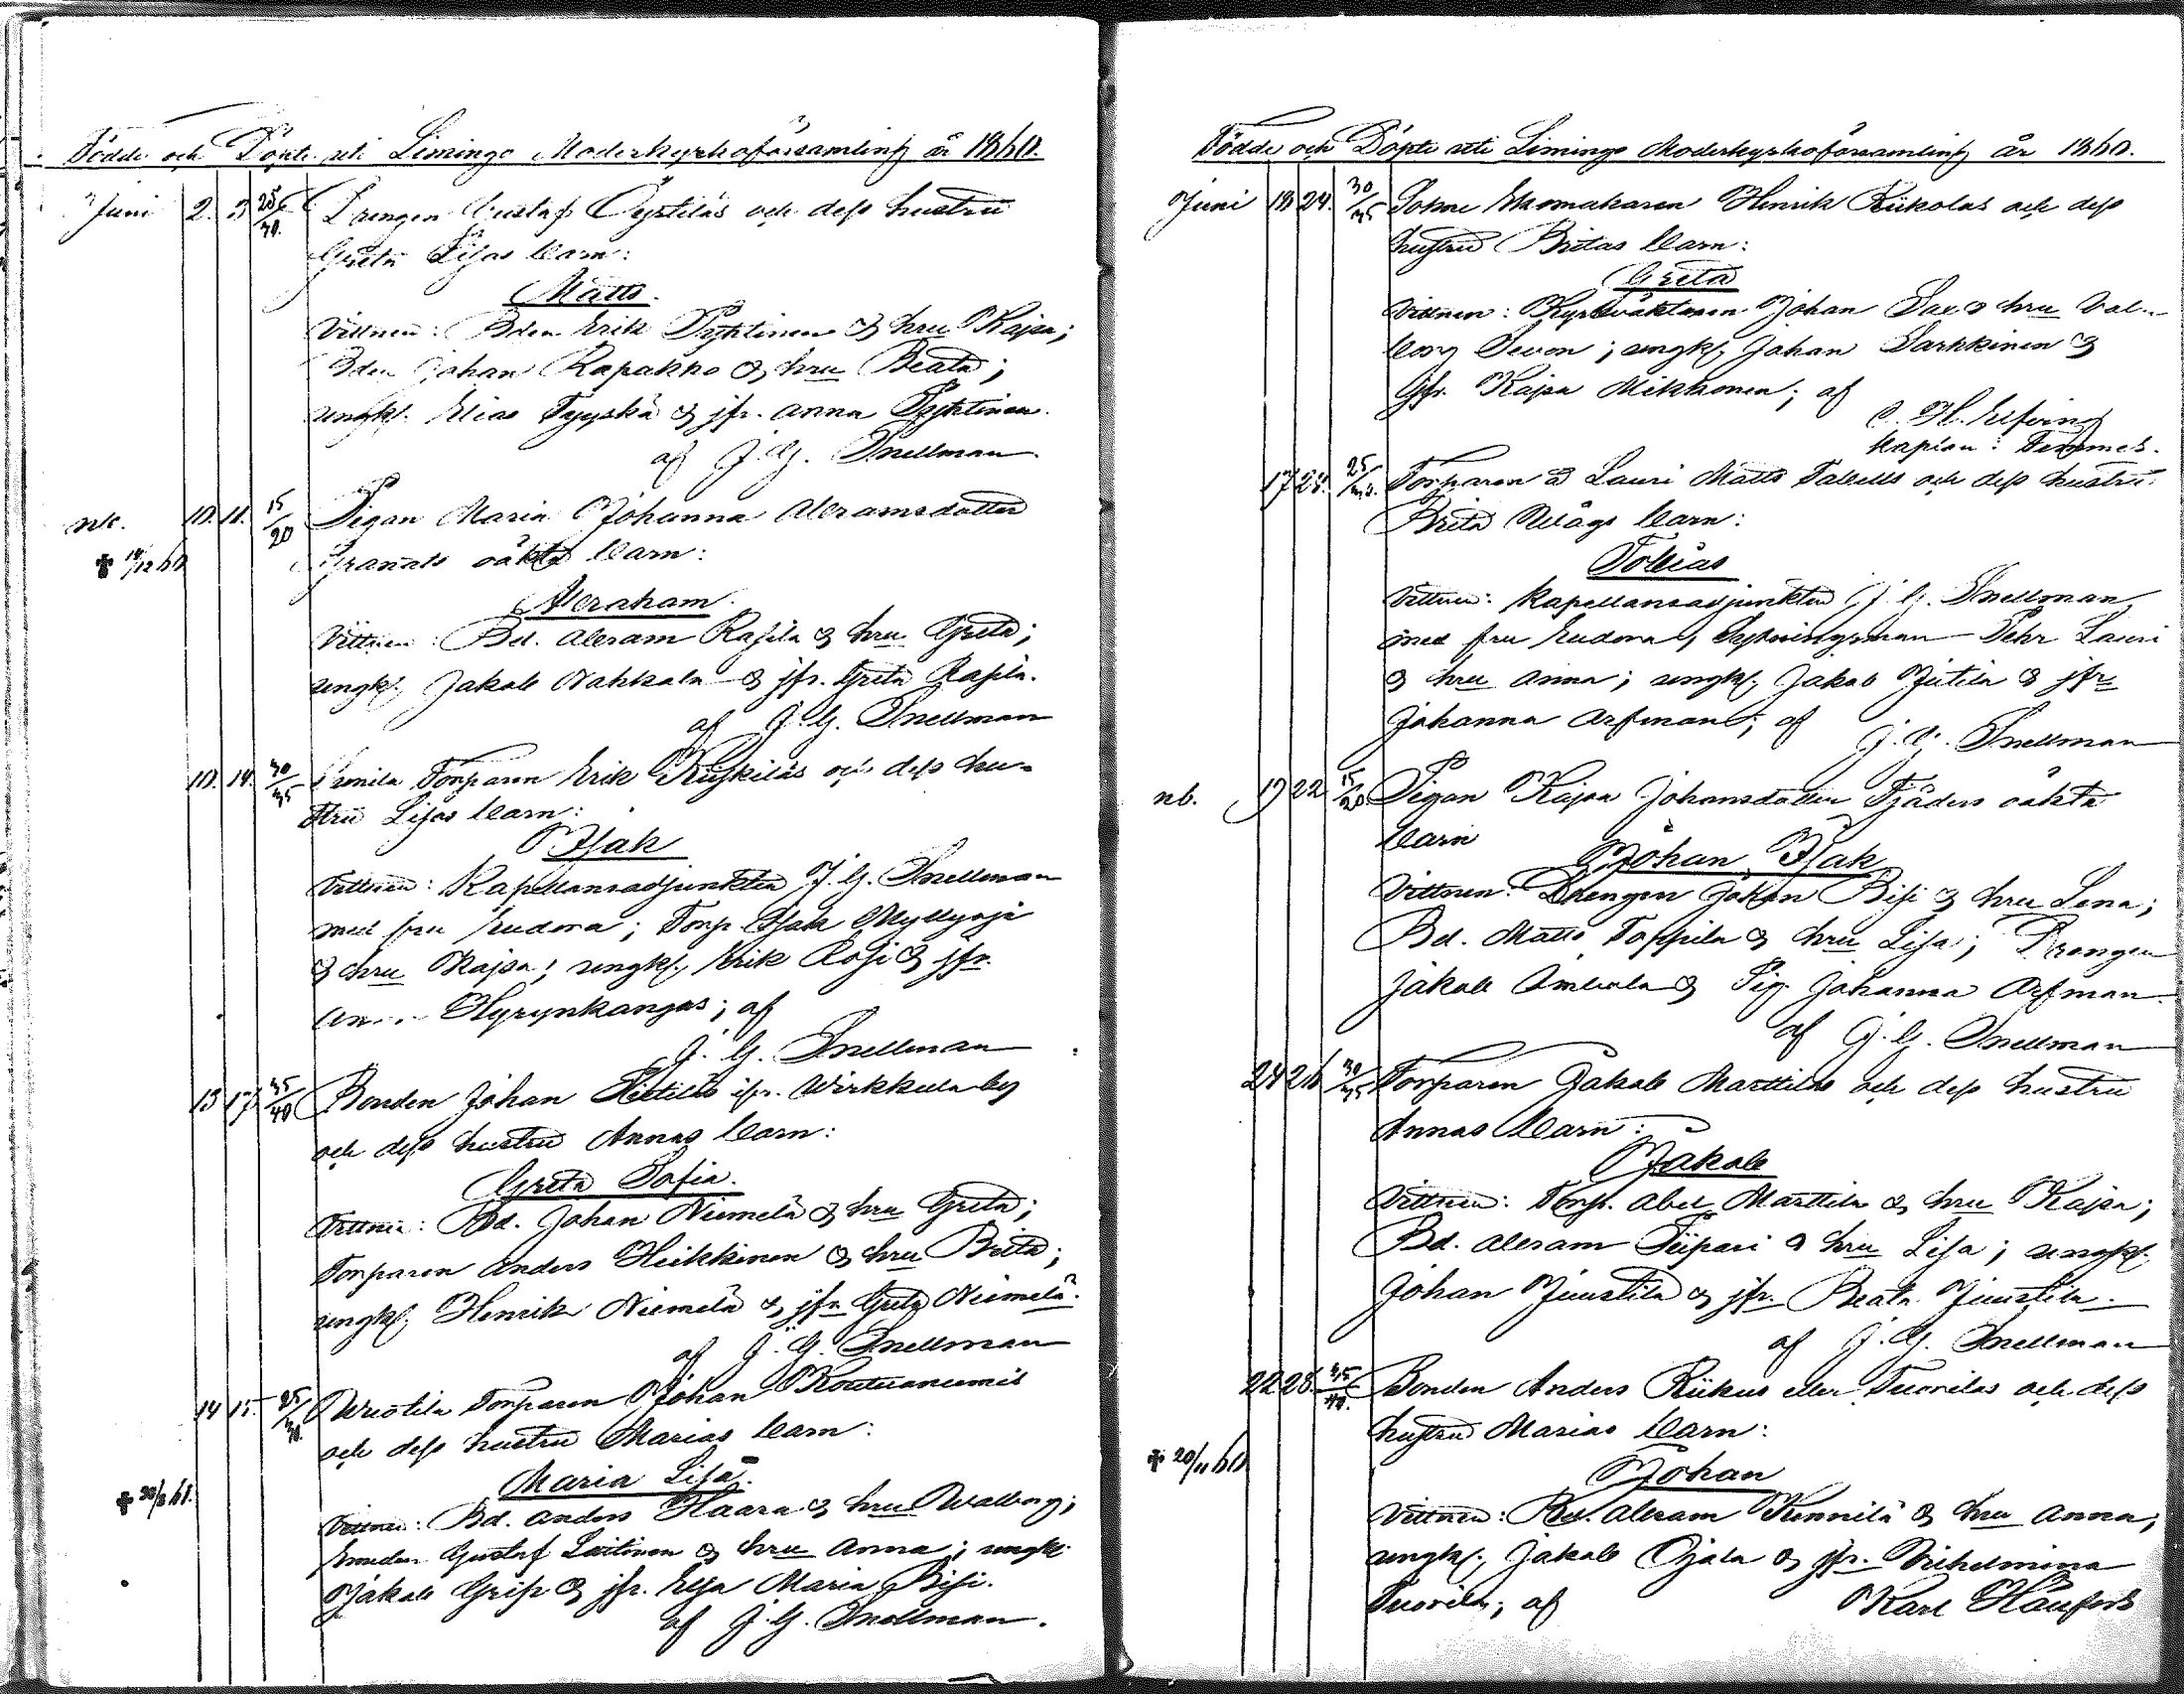 Födde och Döpte uti Limingo Moderkyrkoförsamling år 1860.
Juni 2. 3 25/30. Drengen Gustaf Öystiläs och dess hustru
Greta Lisas barn:
Matts.
Vittnen: Bden Erik Pyhtinen & hru Kajsa;
Bden Johan Rapakko & hru Beata;
ungk. Elias Tyyskä & jfr. Anna Pyhtinen.
af J. G. Snellman
nb. 10. 11. 15/20 Pigan Maria Johanna Abramsdotter
† 14/12 60 Granats oäkta barn:
Abraham.
Vittnen: Bd. Abram Rajila & hru Greta;
ungk. Jakob Nahkala & jfr. Greta Rajila.
af J. G. Snellman
10. 14. 30/35 Torparen Erik Kyskiläs och dess hu-
stru Lisas barn:
Isak
Vittnen: Kapellansadjunkten J. G. Snellman
med fru Eudora; Torp. Isak Myllyoja
& hru Kajsa; ungk. Erik & jfr.
Hyrynkangas; af
J. G. Snellman
13 17 35/40 Bonden Johan ifr. Wirkkula by
och dess hustru Annas barn:
Greta Sofia.
Vittnen: Bd. Johan Niemelä & hru Greta;
Torparen Anders Heikkinen & hru Brita;
ungk. Henrik Niemelä & jfr Greta Niemelä.
af J. G. Snellman
14 15. 25/30. Torparen Johan Koutuaniemis
och dess hustru Marias barn:
Maria Lisa.
† 30/8 60. Vittnen: Bd. Anders Haara & hru Walborg;
Gustaf Laitinen & hru Anna; ungk.
Jakob Grip & jfr. Elsa Maria Bisi.
af J. G. Snellman.
Födde och Döpte uti Limingo Moderkyrkoförsamling år 1860.
Juni 18 24. 30/35 Henrik Riikolas och dess
hustru Britas barn:
Greta
Vittnen: Kyrkväktaren Johan Sax & hru Val-
borg ; ungk. Johan Sarkkinen &
jfr. Kajsa Mikkonen; af
C. H. Elfving
kaplan i Temmes.
17 25. 25/30. Torparen å Lauri Matts och dess hustru
Brita barn:
Tobias
Vittnen: Kapellansadjunkten J. G. Snellman
med fru Eudora, Pehr Lauri
& hru Anna; ungk. Jakob Jutila & jfr
Johanna Arfman; af
J. G. Snellman
nb. 19 22 15/20 Pigan Kajsa Johansdotter Tjäders oäkta
barn
Johan Isak
Vittnen: Drengen Johan Bisi & hru Lena;
Bd. Matts Toppila & hru Lisa; Drengen
Jakob & Pig. Johanna Arfman.
af J. G. Snellman
24 26 30/35 Torparen Jakob Marttilas och dess hustru
Annas barn:
Jakob
Vittnen: Torp. Abel Marttila & hru Kajsa;
Bd. Abram Piipari & hru Lisa; ungk.
Johan Juustila & jfr. Beata Juustila.
af J. G. Snellman
22 28. 35/40. Bonden Anders Riikus eller Tuorilas och dess
hustru Marias barn:
† 20/11 60 Johan
Vittnen: Bd. Abram Kunnila & hru Anna;
ungk. Jakob Ojala & jfr. Vilhelmina
Tuorila; af Karl